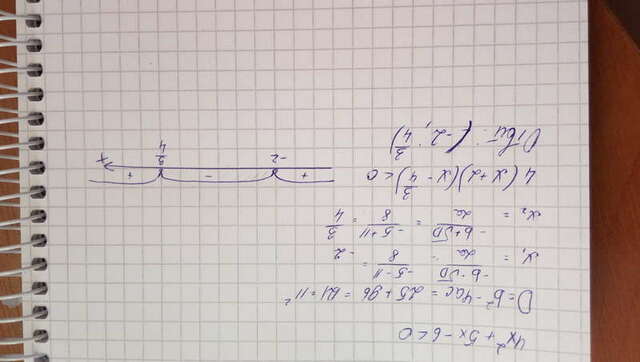 4x² + 5x - 6 < 0
D = b² - 4ac = 25 + 96 = 121 = 11²
x₁ = (-b - √D)/2a = (-5 - 11)/8 = -2
x₂ = (-b + √D)/2a = (-5 + 11)/8 = 3/4
4(x + 2)(x - 3/4) < 0
+ - + x
-2 3/4
Ответ: (-2; 3/4)